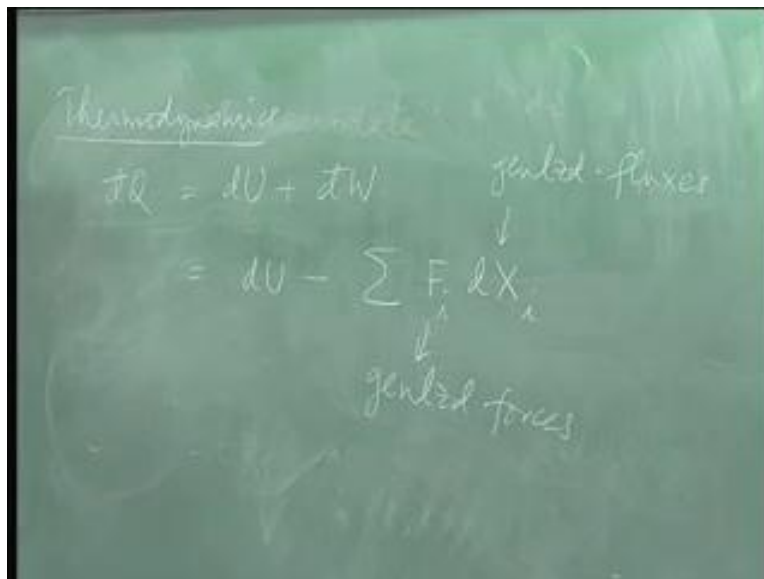 Thermodynamics
đQ = dU + đW
genlzd. fluxes
↓
= dU - ∑ Fᵢ dXᵢ
↓
genlzd. forces